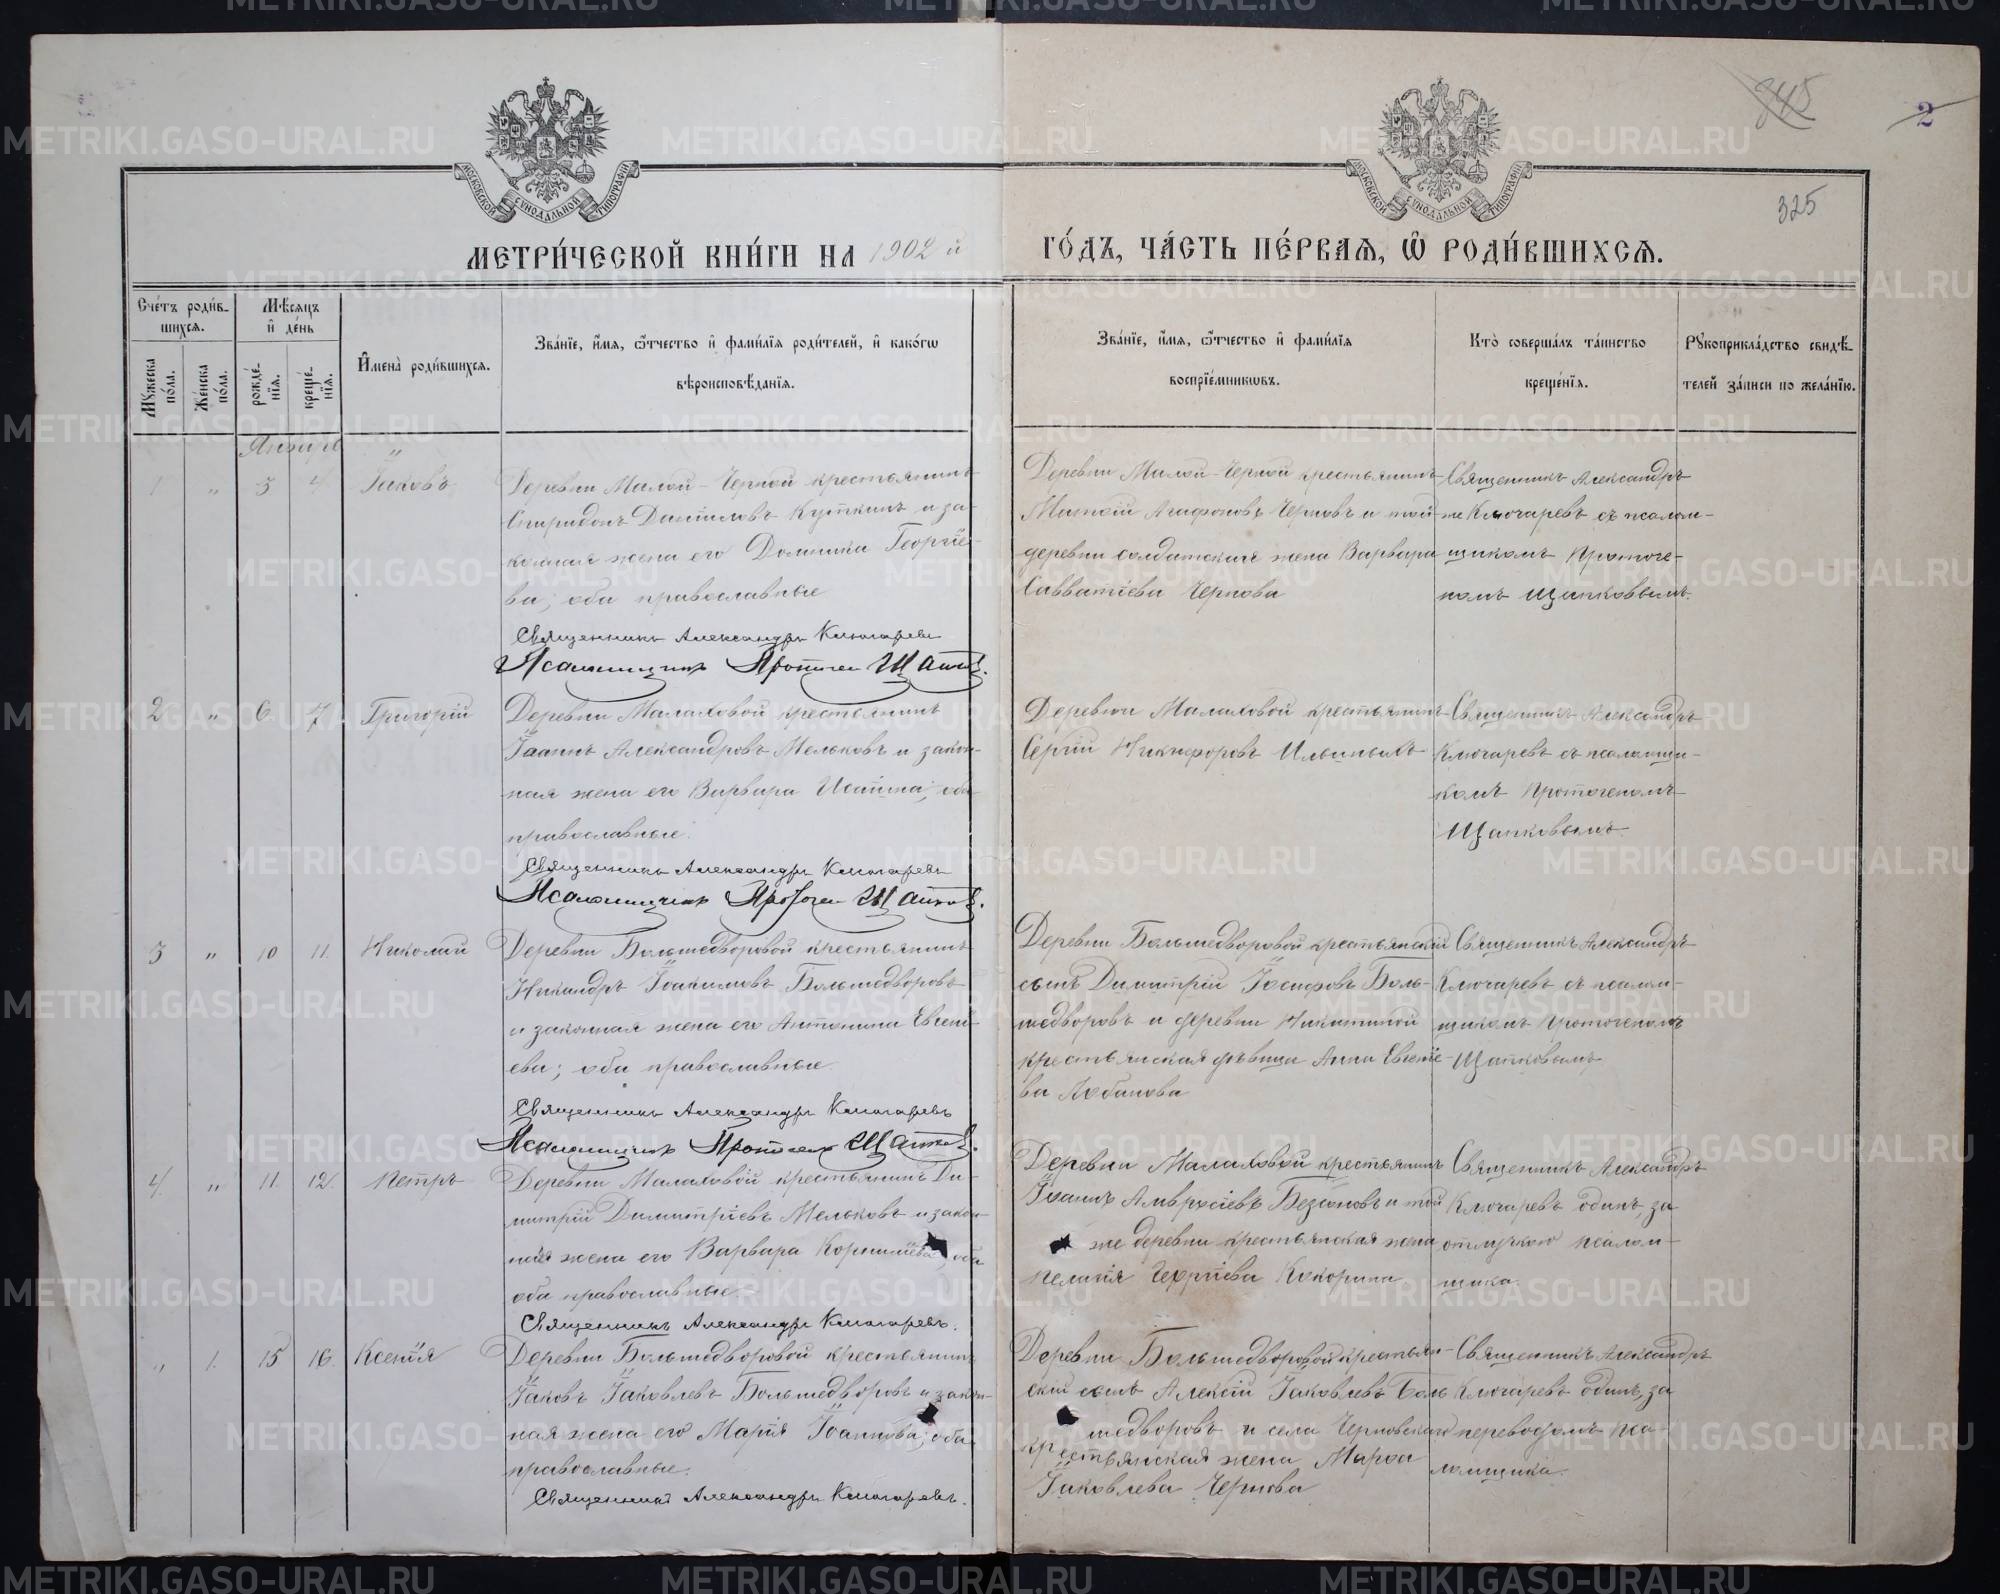 845
2
325
МОСКОВСКОЙ СѴНОДАЛЬНОЙ ТИПОГРАФІИ
МОСКОВСКОЙ СѴНОДАЛЬНОЙ ТИПОГРАФІИ
МЕТРИ́ЧЕСКОЙ КНИ́ГИ НА 1902 й
ГО́ДЪ, ЧА́СТЬ ПЕ́РВАѦ, Ѡ҆ РОДИ́ВШИХСѦ.
Сче́тъ роди́в-
шихсѧ.
Мѣ́сѧцъ
и҆ де́нь
Мꙋ́жеска
по́ла.
Же́нска
по́ла.
рожде́-
нїѧ.
креще́-
нїѧ.
И҆мена̀ роди́вшихсѧ.
Зва́нїе, и҆́мѧ, ѻ҆́тчество и҆ фами́лїѧ роди́телей, и҆ како́гѡ
вѣроисповѣ́данїѧ.
Зва́нїе, и҆́мѧ, ѻ҆́тчество и҆ фами́лїѧ
воспрїе́мникѡвъ.
Кто̀ соверша́лъ та́инство
креще́нїѧ.
Рꙋкоприкла́дство свидѣ́-
телей за́писи по жела́нїю.
Январь
1 „ 3 4 Іаковъ
Деревни Малой-Черной крестьянинъ
Спиридонъ Даниловъ Куткинъ и за-
конная жена его Домника Георгіе-
ва; оба православные
Священникъ Александръ Ключаревъ
Псаломщикъ Протоген Щапков.
Деревни Малой-Черной крестьянинъ
Матѳій Агафоновъ Черновъ и той-же
деревни солдатская жена Варвара
Савватіева Чернова
Священникъ Александръ
Ключаревъ съ псалом-
щикомъ Протоге-
номъ Щапковымъ.
2 „ 6 7 Григорій
Деревни Малаховой крестьянинъ
Іоаннъ Александровъ Мельковъ и закон-
ная жена его Варвара Исаіина; оба
православные.
Священникъ Александръ Ключаревъ
Псаломщикъ Протоген Щапков.
Деревни Малаховой крестьянинъ
Сергій Никифоровъ Ильиныхъ
Священникъ Александръ
Ключаревъ съ псаломщи-
комъ Протогеномъ
Щапковымъ
3 „ 10 11. Николай
Деревни Большедворовой крестьянинъ
Никандръ Іоакимовъ Большедворовъ
и законная жена его Антонина Евгені-
ева; оба православные.
Священникъ Александръ Ключаревъ
Псаломщикъ Протогенъ Щапков.
Деревни Большедворовой крестьянскій
сынъ Димитрій Іосифовъ Боль-
шедворовъ и деревни Никитиной
крестьянская дѣвица Анна Евгеніе-
ва Лобанова
Священникъ Александръ
Ключаревъ съ псалом-
щикомъ Протогеномъ
Щапковымъ
4. „ 11. 12. Петръ
Деревни Малаховой крестьянинъ Ди-
митрій Димитріевъ Мельковъ и закон-
ная жена его Варвара Корниліева; оба
оба православные
Священникъ Александръ Ключаревъ.
Деревни Малаховой крестьянинъ
Іоаннъ Амвросіевъ Безсоновъ и той
же деревни крестьянская жена
Пелагія Кокорина
Священникъ Александръ
Ключаревъ одинъ, за
отлучкою псалом-
щика.
„ 1. 15 16. Ксенія
Деревни Большедворовой крестьянинъ
Іаковъ Іаковлевъ Большедворовъ и закон-
ная жена его Марія Іоаннова; оба
православные.
Священникъ Александръ Ключаревъ.
Деревни Большедворовой крестьян-
скій сынъ Алексій Іаковлевъ Боль
шедворовъ и села Черновскаго
крестьянская жена Марѳа
Іаковлева Чернова
Священникъ Александръ
Ключаревъ одинъ, за
переводомъ пса-
ломщика.
METRIKI.GASO-URAL.RU